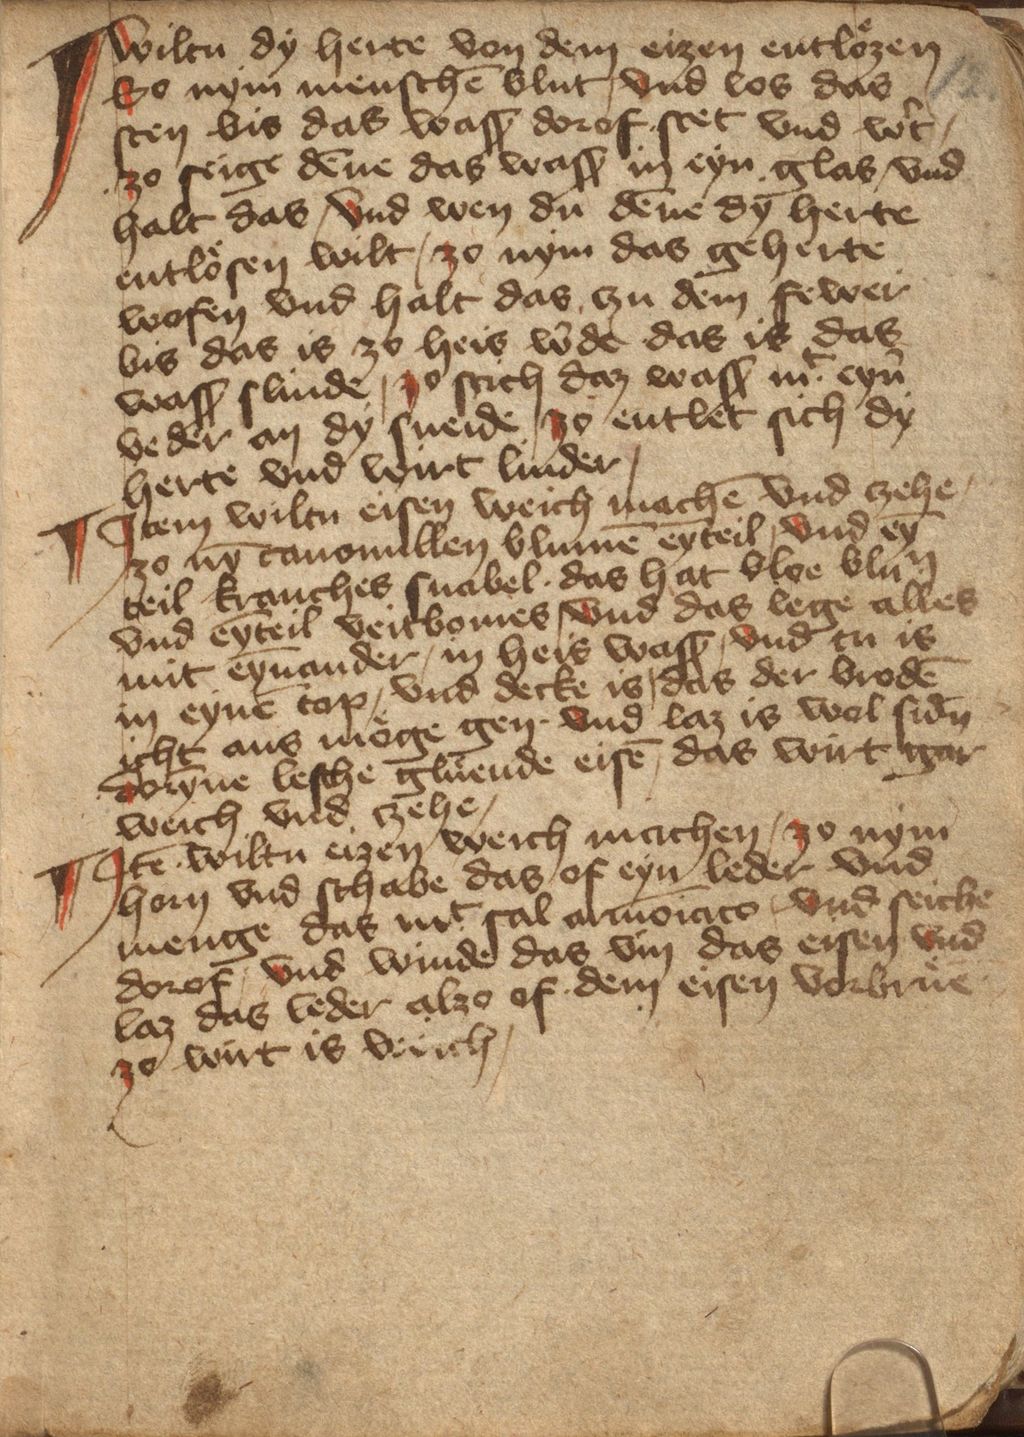 Wiltu dÿ herte von dem eizen entloͤzen
So nym menschē blut / vnd los das
sten bis das wasß dorof stet vnd wͬt /
zo seige dēne das wasß in eyn glas / vnd
halt das / vnd wen du dēne dÿ herte
entloͤsen wilt / zo nym das geherte
wofen vnd halt das zu dem fewer
bis das is zo heis wͬde das is das
wasß slinde / zo strich daz wasß mͭ eyn̄
veder an dÿ sneide / zo entlet sich dÿ
herte vnd wirt linder /
Jtem wiltu eisen weich machē vnd czehe /
zo nȳ camomillen blumē eyteil / vnd eȳ
teil kranches snabel · das hat bloe blum̄
vnd eyteil veitbomes / vnd das lege alles
mit eynander / in heis wasß / vnd tu is
in eynē top / vnd decke is / das der brodē
icht aus moͤge gen · vnd laz is wol sidn̄
doryne lesche gluende eisē / das wirt gar
weich vnd czehe /
Jtē wiltu eizen weich machen / zo nym
horn vnd schabe das of eyn leder vnd
menge das mͭ sal armoīaco / vnd seiche
dorof / vnd winde das vm das eisen vnd
laz das leder alzo of dem eisen vorbrūē
zo wirt is weich /